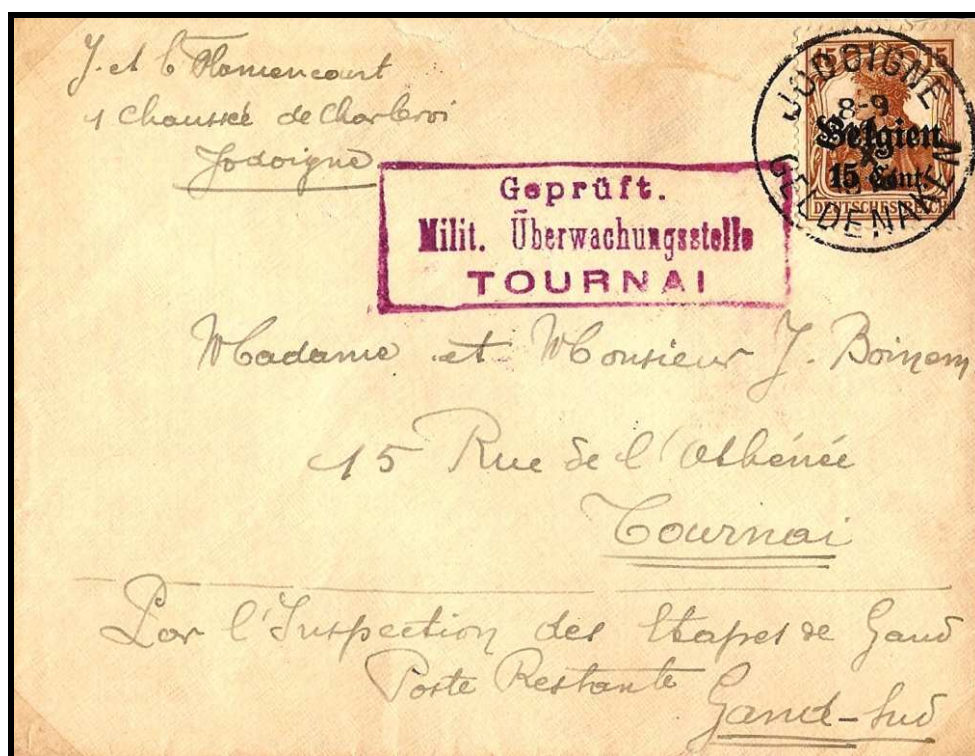 J. et C Flamencourt
1 Chaussée de Charleroi
Jodoigne
15 15
Belgien
15 Cent.
DEUTSCHES REICH
JODOIGNE
8-9
X
GELDENAKEN
Geprüft.
Milit. Überwachungsstelle
TOURNAI
Madame et Monsieur J.
15 Rue de l'Athénée
Tournai
Par l'Inspection des Etapes de Gand
Poste Restante
Gand-Sud